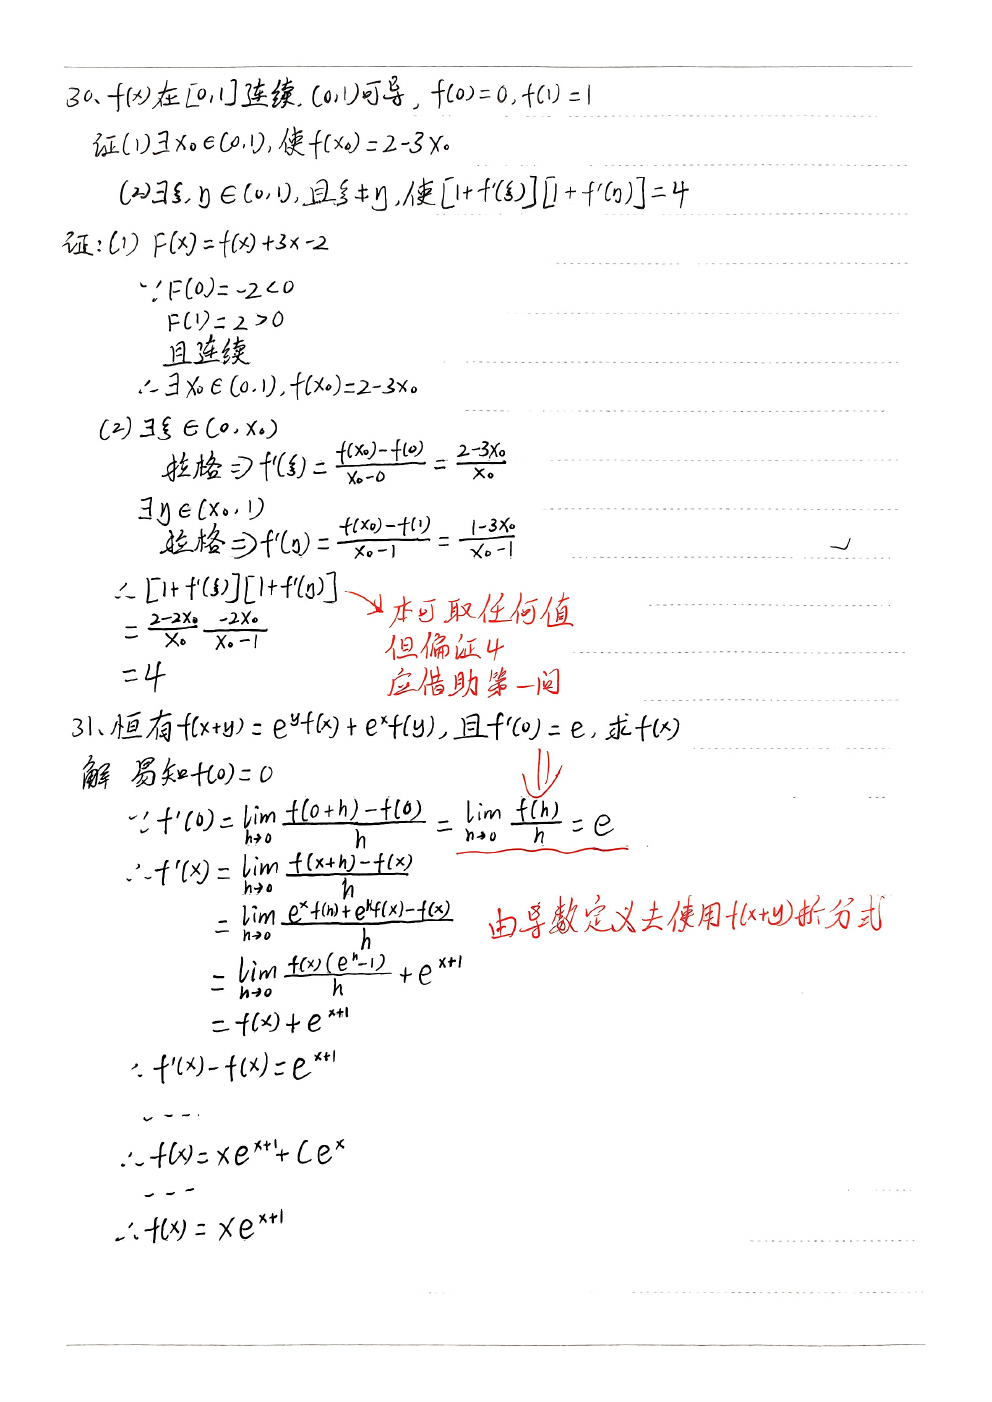 30、f(x)在[0,1]连续,(0,1)可导, f(0)=0,f(1)=1
证(1)∃x₀∈(0,1),使f(x₀)=2-3x₀
(2)∃ξ,η∈(0,1),且ξ≠η,使[1+f'(ξ)][1+f'(η)]=4
证:(1) F(x)=f(x)+3x-2
∵F(0)=-2<0
F(1)=2>0
且连续
∴∃x₀∈(0,1),f(x₀)=2-3x₀
(2)∃ξ∈(0,x₀)
拉格⇒f'(ξ)=\frac{f(x₀)-f(0)}{x₀-0}=\frac{2-3x₀}{x₀}
∃η∈(x₀,1)
拉格⇒f'(η)=\frac{f(x₀)-f(1)}{x₀-1}=\frac{1-3x₀}{x₀-1}
∴[1+f'(ξ)][1+f'(η)]
=\frac{2-2x₀}{x₀}\frac{-2x₀}{x₀-1}
=4
本可取任何值
但偏证4
应借助第一问
31、恒有f(x+y)=e^y f(x)+e^x f(y),且f'(0)=e,求f(x)
解 易知f(0)=0
∵f'(0)=\lim_{h→0}\frac{f(0+h)-f(0)}{h}=\lim_{h→0}\frac{f(h)}{h}=e
∴f'(x)=\lim_{h→0}\frac{f(x+h)-f(x)}{h}
=\lim_{h→0}\frac{e^x f(h)+e^h f(x)-f(x)}{h}
由导数定义去使用f(x+y)拆分式
=\lim_{h→0}\frac{f(x)(e^h-1)}{h}+e^{x+1}
=f(x)+e^{x+1}
∴f'(x)-f(x)=e^{x+1}
----
∴f(x)=xe^{x+1}+Ce^x
---
∴f(x)=xe^{x+1}